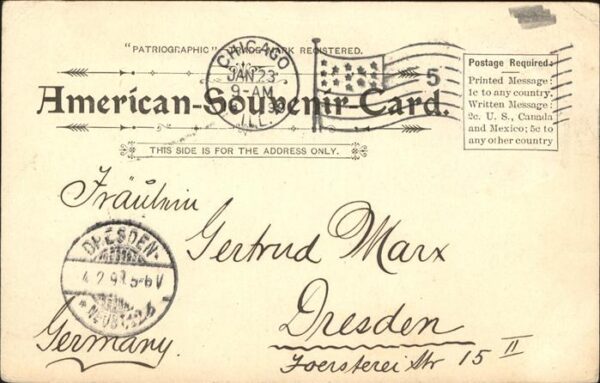 "PATRIOGRAPHIC" TRADE MARK REGISTERED.
CHICAGO
JAN 23
9-AM
ILL.
5
American-Souvenir-Card.
THIS SIDE IS FOR THE ADDRESS ONLY.
Postage Required:
Printed Message:
1c to any country.
Written Message:
2c. U. S., Canada
and Mexico; 5c to
any other country
Fräulein
Gertrud Marx
Dresden
Foersterei Str 15 II
Germany.
DRESDEN-
5-6V